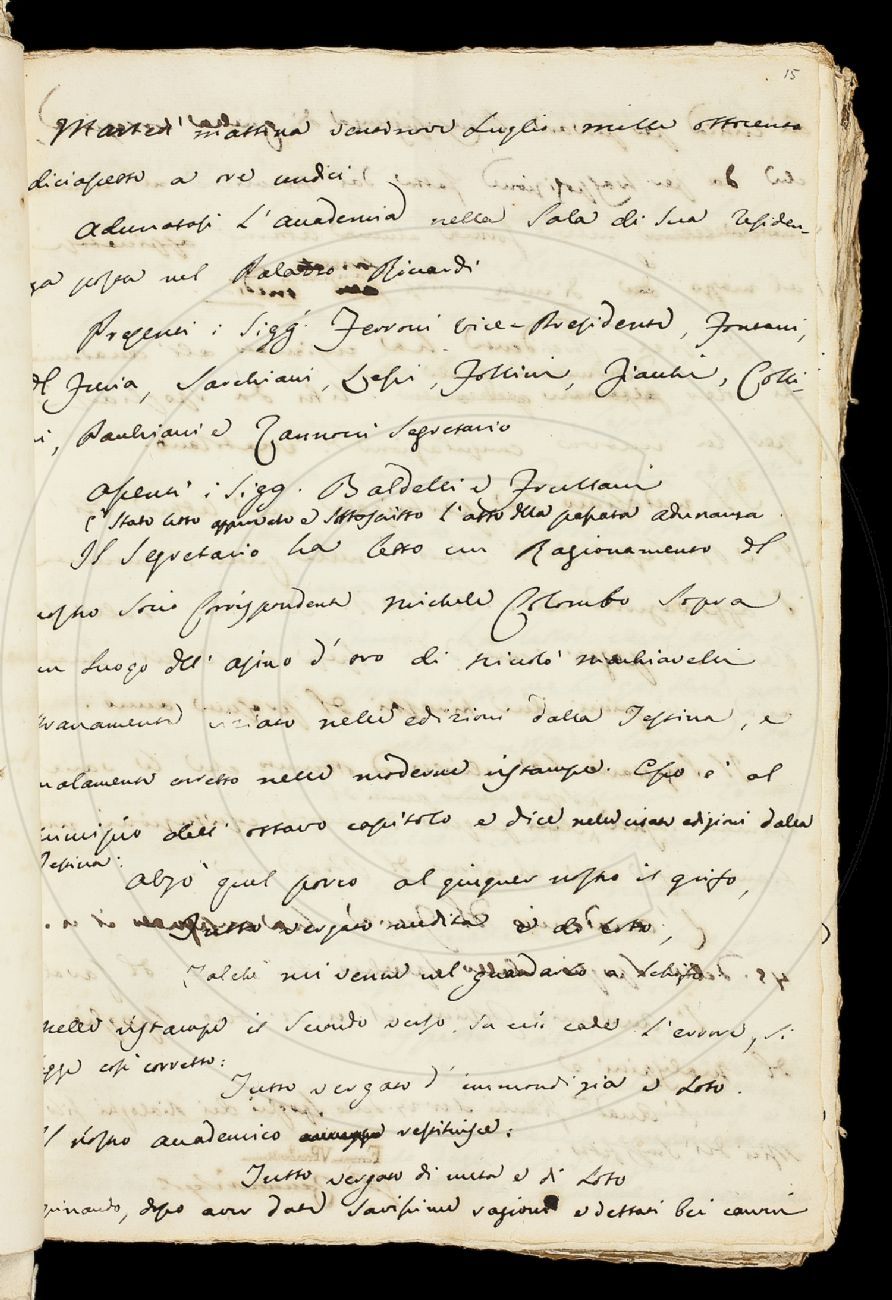 15
Martedì mattina ventinove Luglio mille ottocento
diciassette a ore undici
Adunatasi l'Accademia nella Sala di Sua residen-
za posta nel Palazzo Riccardi
Presenti i Sigg.ri Ferroni vice-Presidente, Fontani,
del Furia, Sarchiani, Lessi, Follini, Fiacchi, Colli-
ni, Pauchiani e Zannoni Segretario
assenti i Sigg. Baldelli e Frullani
È stato letto approvato e sottoscritto l'atto della passata adunanza.
Il Segretario ha letto un Ragionamento del
nostro Socio Corrispondente Michele Colombo Sopra
un luogo dell'asino d'oro di Niccolò Machiavelli
stranamente viziato nelle edizioni dalla Testina, e
malamente corretto nelle moderne ristampe. Esso è al
principio dell'ottavo capitolo e dice nelle citate edizioni dalla
Testina:
Alzò quel porco al giugner nostro il grifo,
Tutto vergato di loto,
Talché mi venne nel guardarlo a schifo.
nelle ristampe il Secondo verso, su cui cade l'errore, si
legge così corretto:
Tutto vergato d'immondizia e loto.
Il nostro accademico restituisce:
Tutto vergato di meta e di loto
opinando, dopo aver date savissime ragioni e dettati bei canoni